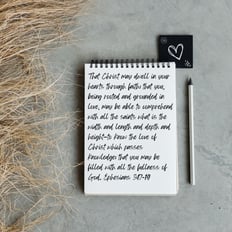 That Christ may dwell in your
hearts through faith; that you,
being rooted and grounded in
love, may be able to comprehend
with all the saints what is the
width and length and depth and
height-to know the love of
Christ which passes
knowledge; that you may be
filled with all the fullness of
God. Ephesians 3:17-19